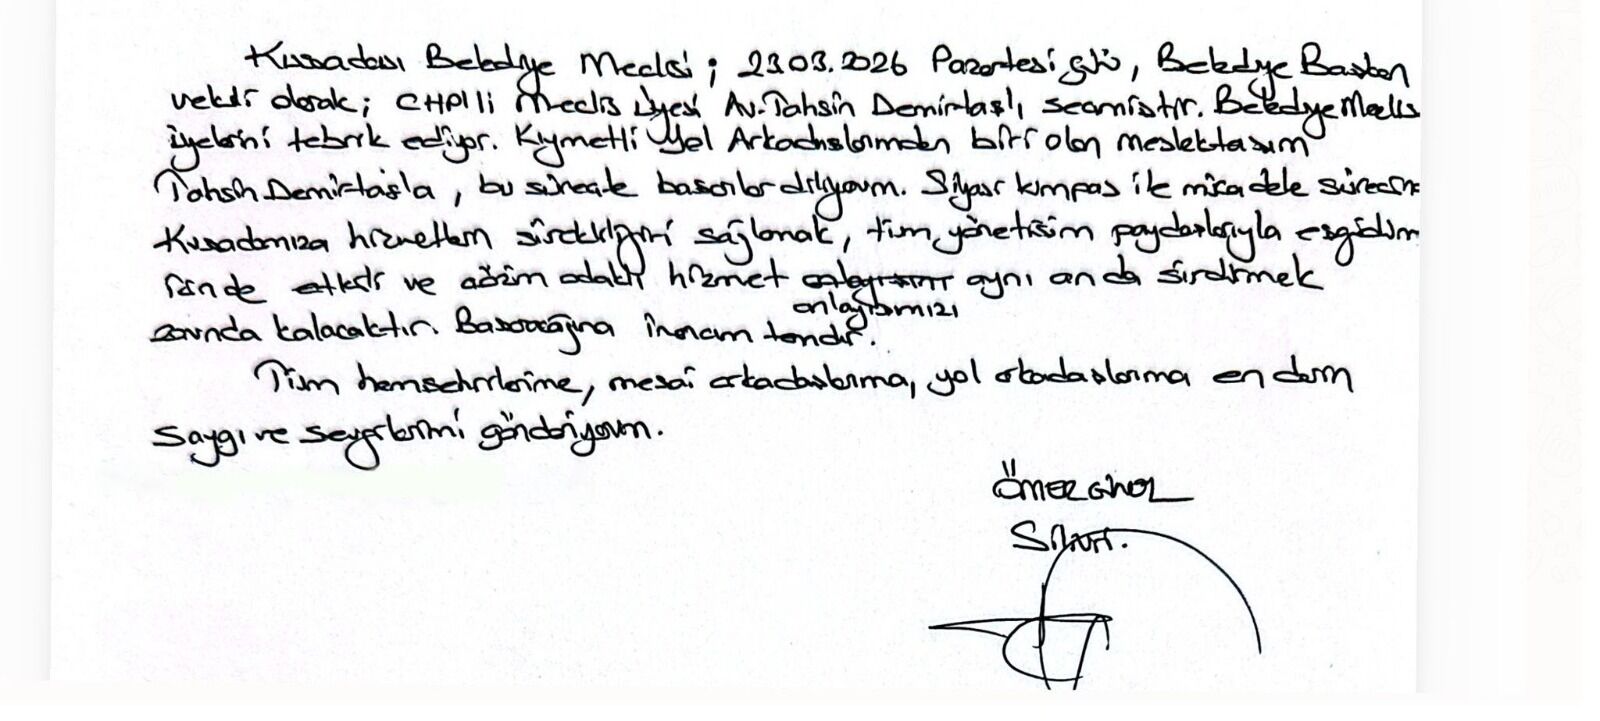 Kuşadası Belediye Meclisi; 23.03.2026 Pazartesi günü, Belediye Başkan
vekili olarak; CHP'li Meclis üyesi Av. Tahsin Demirtaşlı seçmiştir. Belediye Meclis
üyelerini tebrik ediyor. Kıymetli Yol Arkadaşlarımdan biri olan meslektaşım
Tahsin Demirtaş'la, bu süreçte başarılar diliyorum. Siyasi kumpas ile mücadele sürecinde
Kuşadamıza hizmetlerin sürekliliğini sağlamak, tüm yönetişim paydaşlarıyla eşgüdüm
içinde etkili ve çözüm odaklı hizmet aynı anda sürdürmek
anlayışımızı
zorunda kalacaktır. Başaracağına inancım tamdır.
Tüm hemşehrilerime, mesai arkadaşlarıma, yol arkadaşlarıma en derin
saygı ve sevgilerimi gönderiyorum.
ÖMER GÜNEL
Silivri.